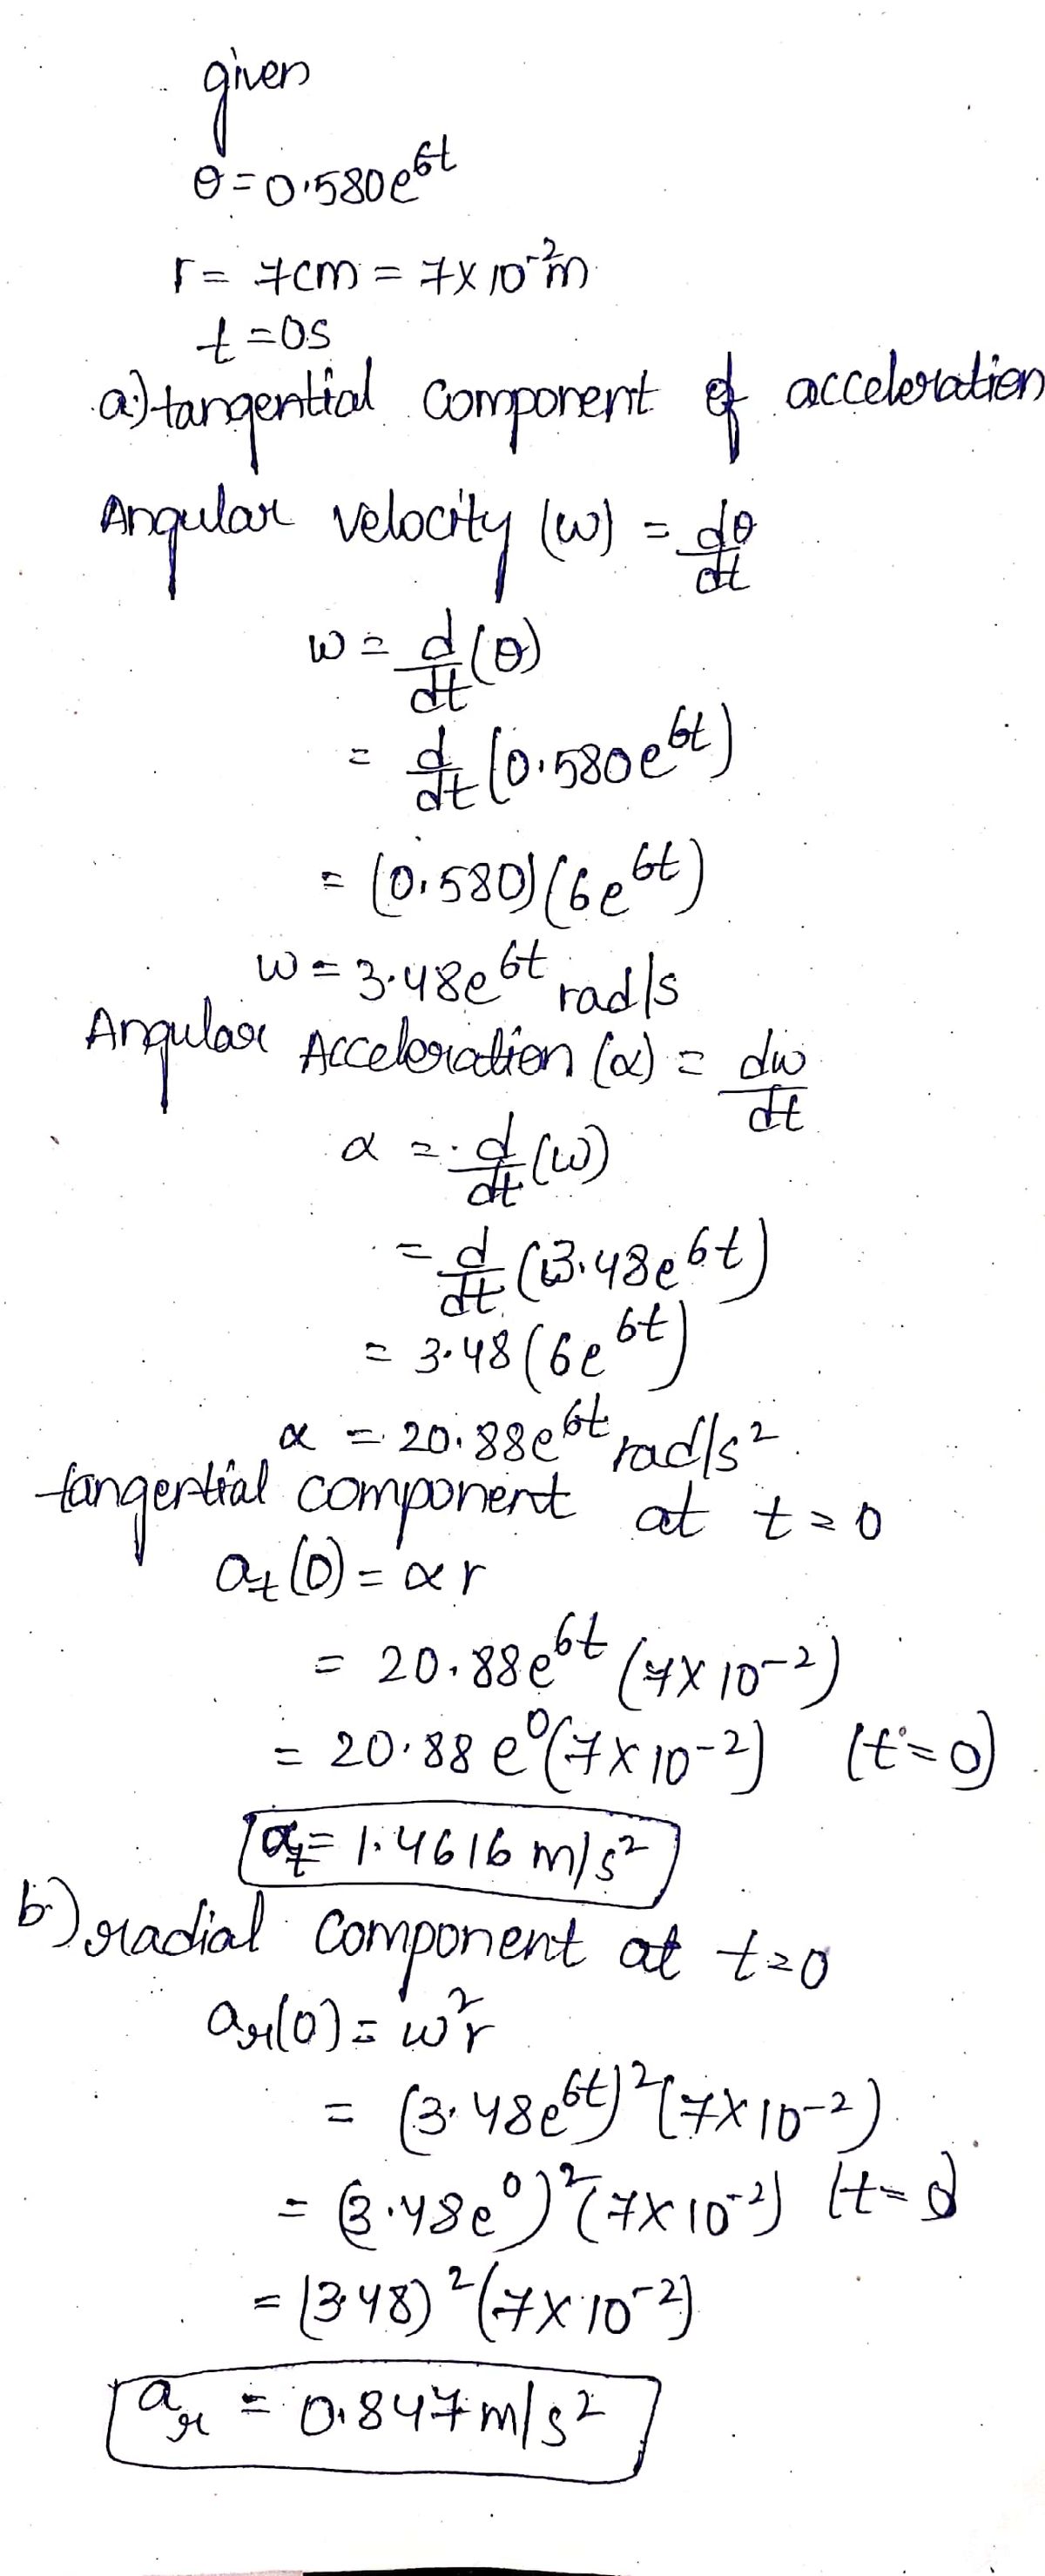 given
θ=0.580e^6t
r = 7cm = 7×10^-2 m
t=0s
a) tangential component of acceleration
Angular velocity (ω) = dθ/dt
ω = d/dt (θ)
= d/dt (0.580e^6t)
= (0.580)(6e^6t)
ω = 3.48e^6t rad/s
Angular Acceleration (α) = dω/dt
α = d/dt (ω)
= d/dt (3.48e^6t)
= 3.48(6e^6t)
α = 20.88e^6t rad/s^2
tangential component at t=0
a_t(0) = αr
= 20.88e^6t (7×10^-2)
= 20.88 e^0 (7×10^-2) (t=0)
a_t = 1.4616 m/s^2
b) radial component at t=0
a_r(0) = ω^2 r
= (3.48e^6t)^2 (7×10^-2)
= (3.48e^0)^2 (7×10^-2) (t=0
= (3.48)^2 (7×10^-2)
a_r = 0.847 m/s^2